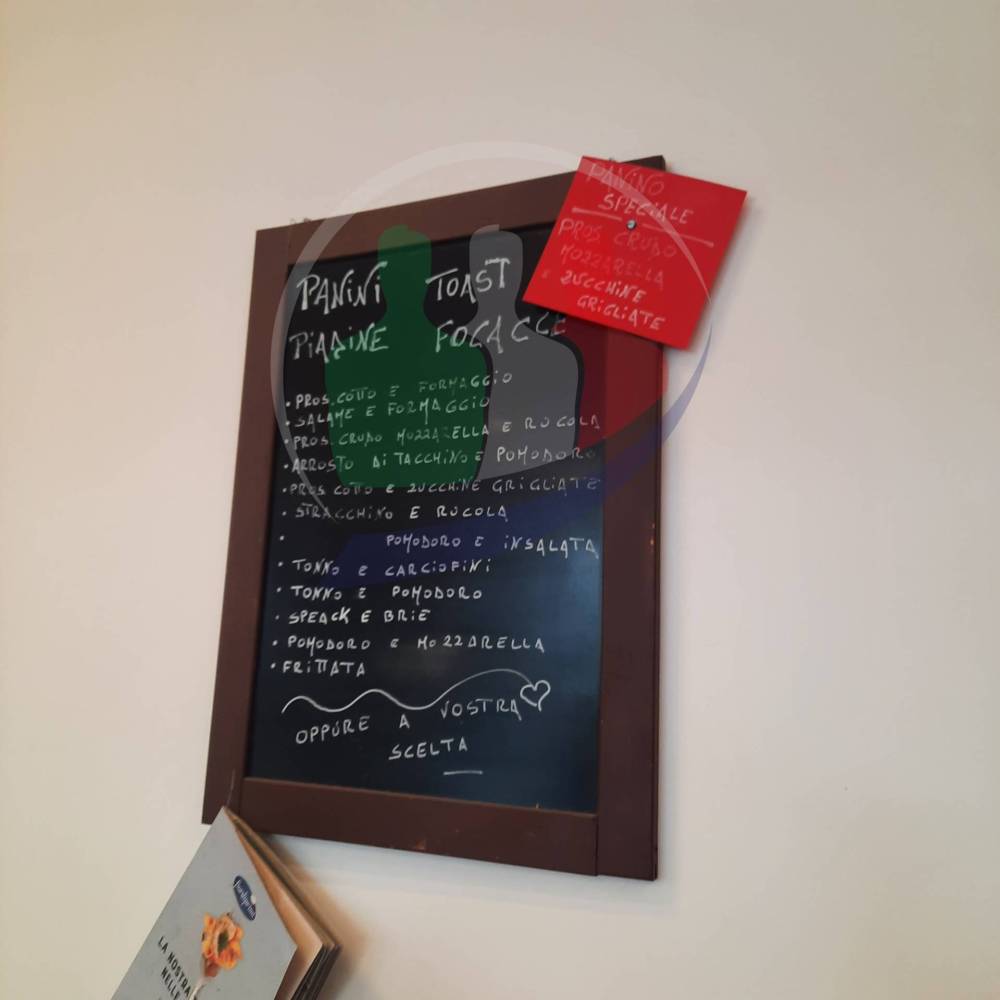 PANINI TOAST
PIADINE FOCACCE
• PROS. COTTO E FORMAGGIO
• SALAME E FORMAGGIO
• PROS. CRUDO MOZZARELLA E RUCOLA
• ARROSTO DI TACCHINO E POMODORO
• PROS COTTO E ZUCCHINE GRIGLIATE
• STRACCHINO E RUCOLA
• POMODORO E INSALATA
• TONNO E CARCIOFINI
• TONNO E POMODORO
• SPEACK E BRIE
• POMODORO E MOZZARELLA
• FRITTATA
OPPURE A VOSTRA
SCELTA
PANINO
SPECIALE
PROS CRUDO
MOZZARELLA
E ZUCCHINE
GRIGLIATE
LA NOSTRA
NELLE